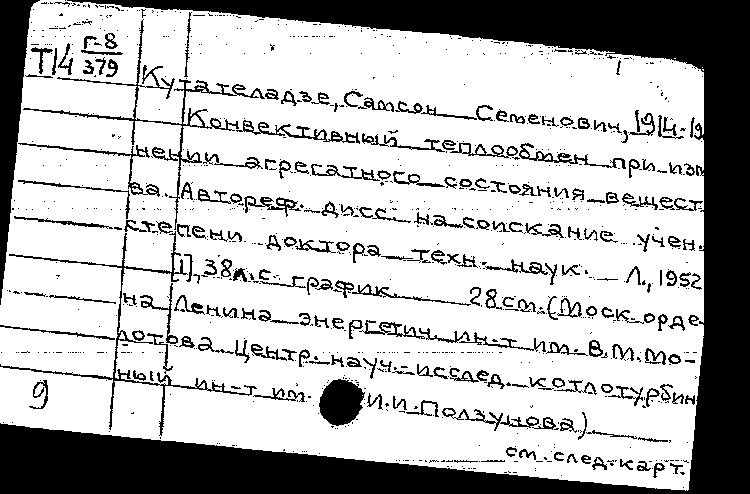 Т14 Г-8
379
Кутателадзе, Самсон Семенович, 1914-19
Конвективный теплообмен при изм
нении агрегатного состояния вещест
ва. Автореф. дисс. на соискание учен.
степени доктора техн. наук. Л., 1952
[1], 38 л. с. график. 28 см. (Моск. орде-
на Ленина энергетич. ин-т им. В.М. Мо-
лотова. Центр. науч.-исслед. котлотурбин
ный ин-т им. И.И. Ползунова).
9
см. след. карт.